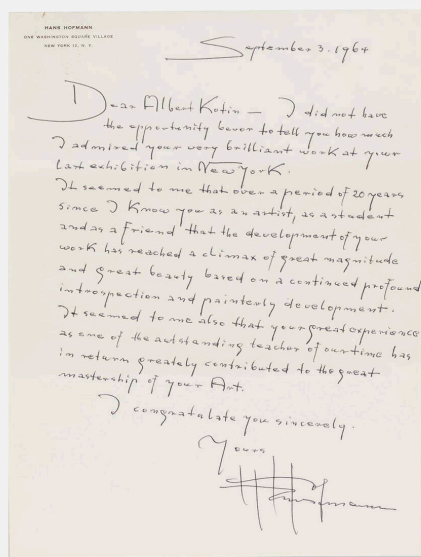 HANS HOFMANN
ONE WASHINGTON SQUARE VILLAGE
NEW YORK 12, N. Y.
September 3. 1964
Dear Albert Kotin — I did not have
the opportunity bevor to tell you how much
I admired your very brilliant work at your
last exhibition in New York.
It seemed to me that over a period of 20 years
since I know you as an artist, as a student
and as a friend that the development of your
work has reached a climax of great magnitude
and great beauty based on a continued profound
introspection and painterly development.
It seemed to me also that your great experience
as one of the autstanding teacher of our time has
in return greately contributed to the great
mastership of your Art.
I congratulate you sincerely.
Yours
Hans Hofmann